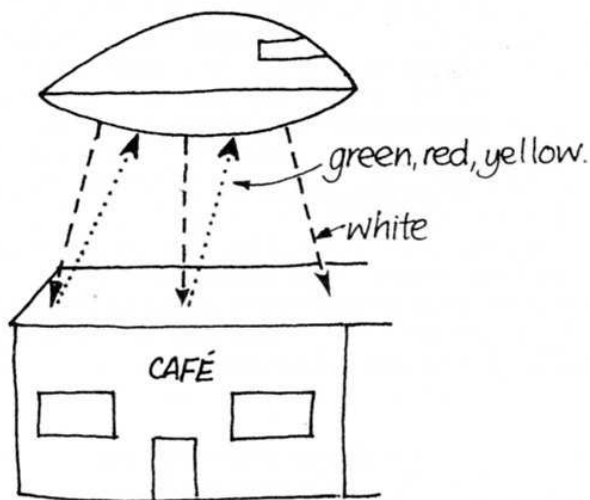 green, red, yellow.
white
CAFÉ